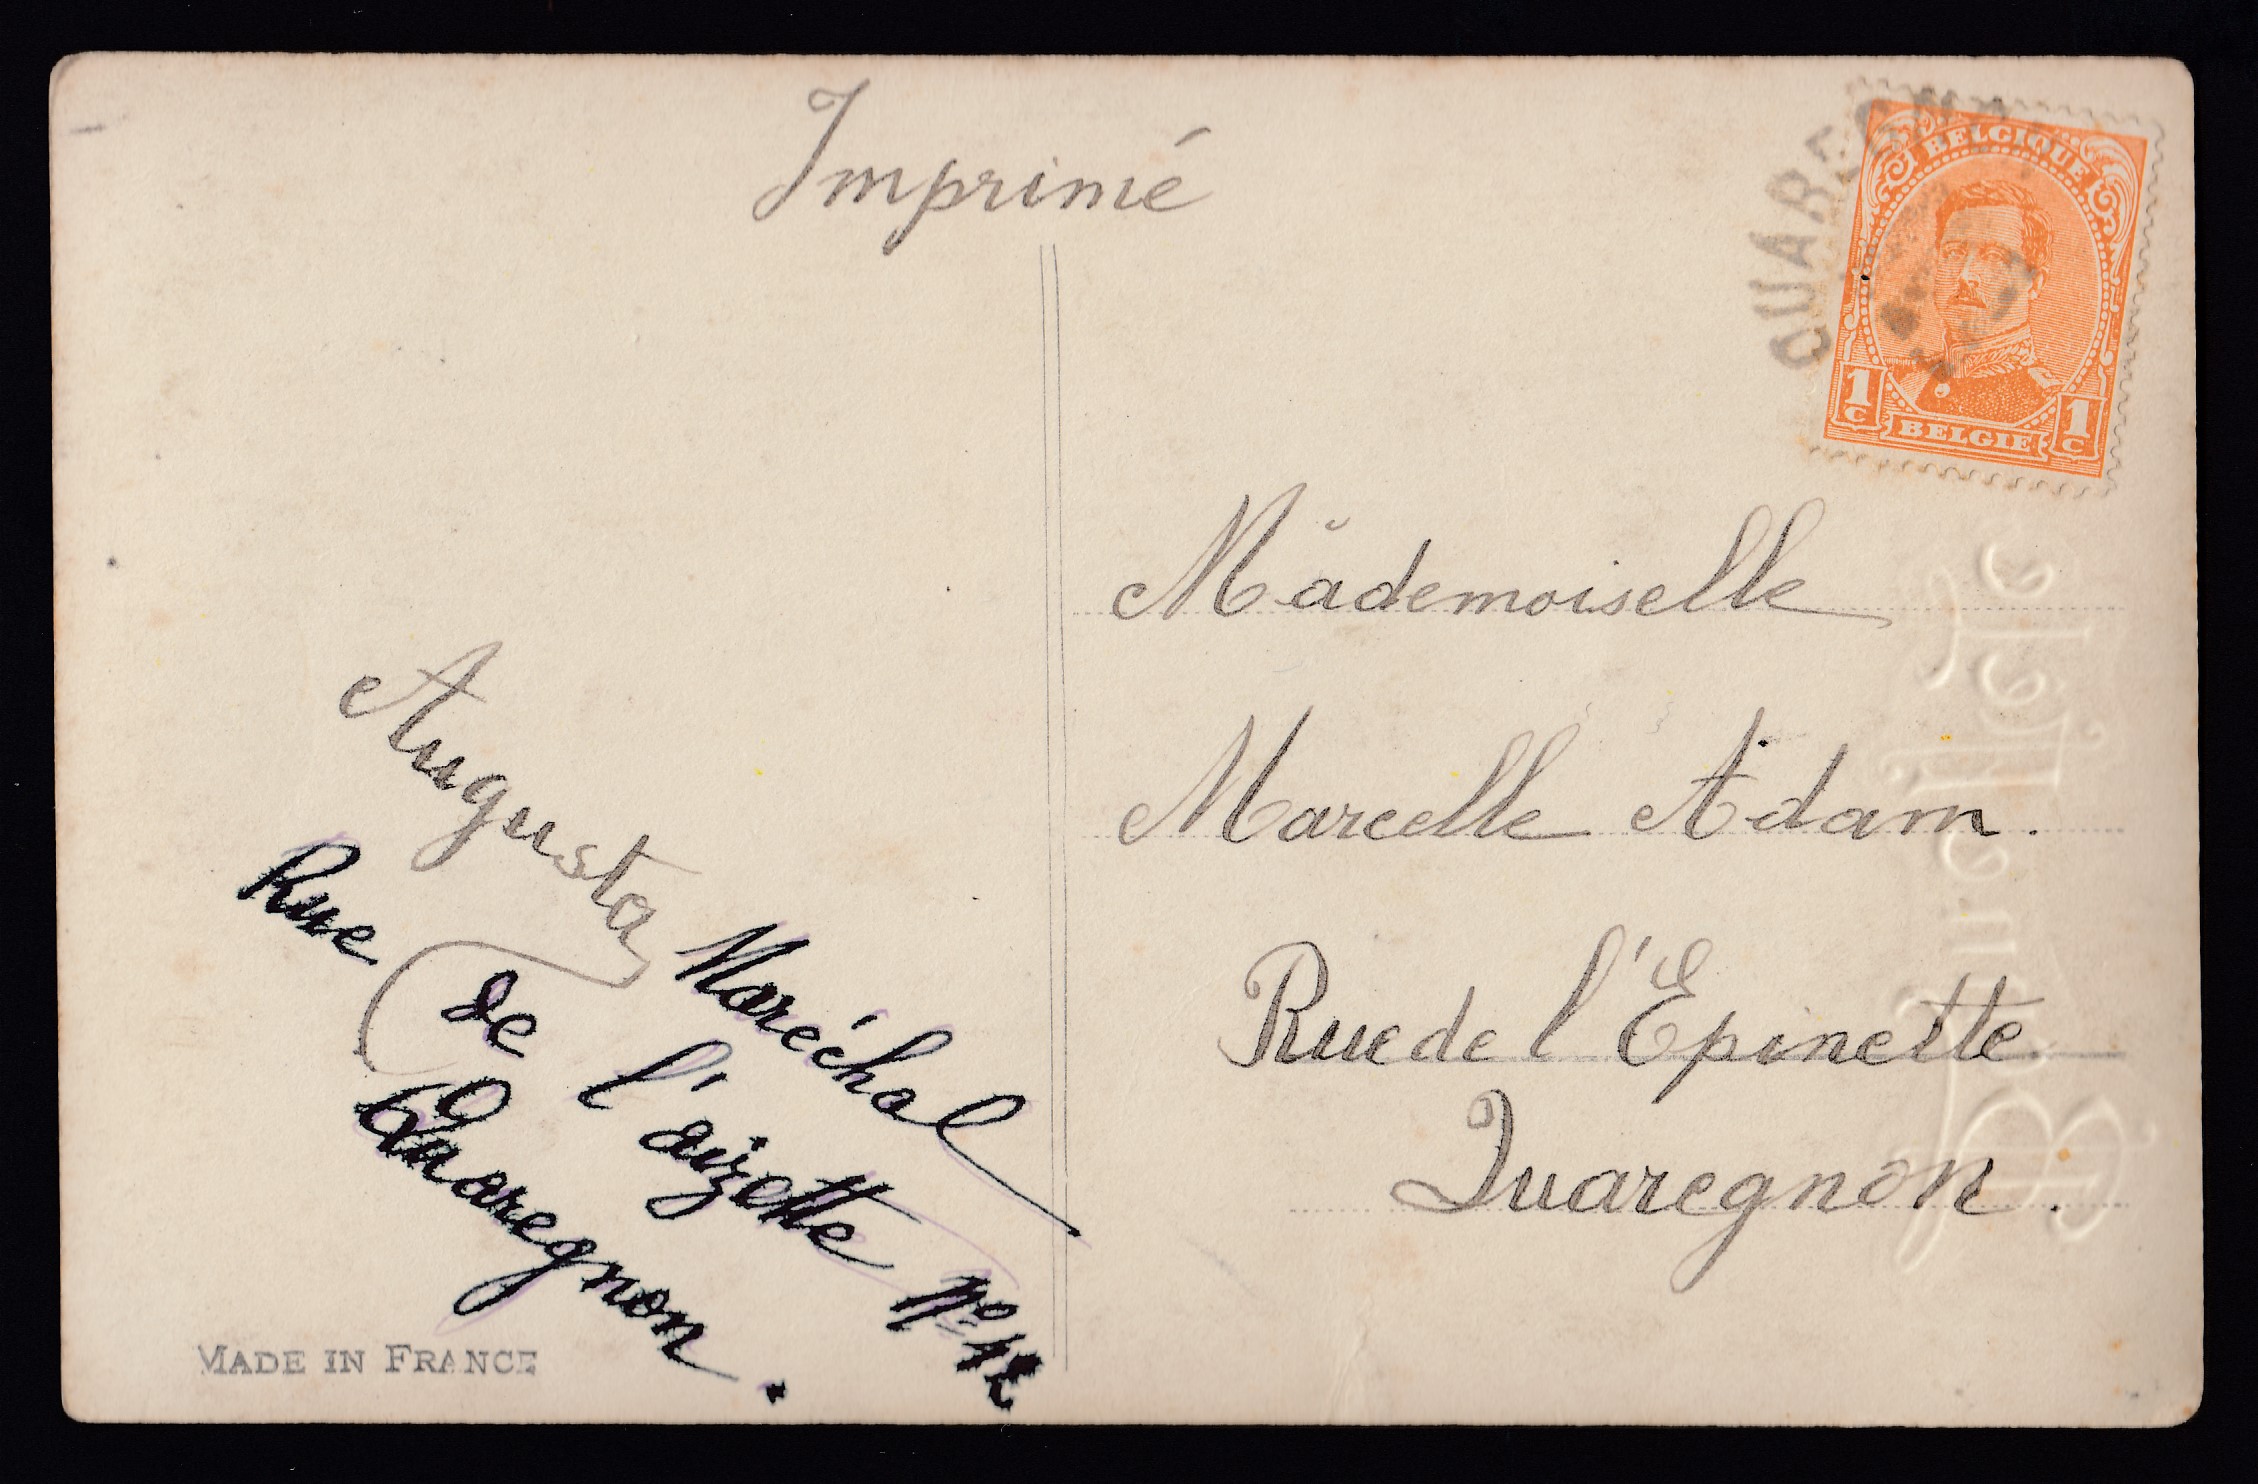 Imprimé
QUAREGN
BELGIQUE
1c
1c
BELGIE
Mademoiselle
Marcelle Adam.
Rue de l'Epinette
Quaregnon.
Augusta Maréchal
Rue de l'aizette N° 12
Quaregnon.
MADE IN FRANCE